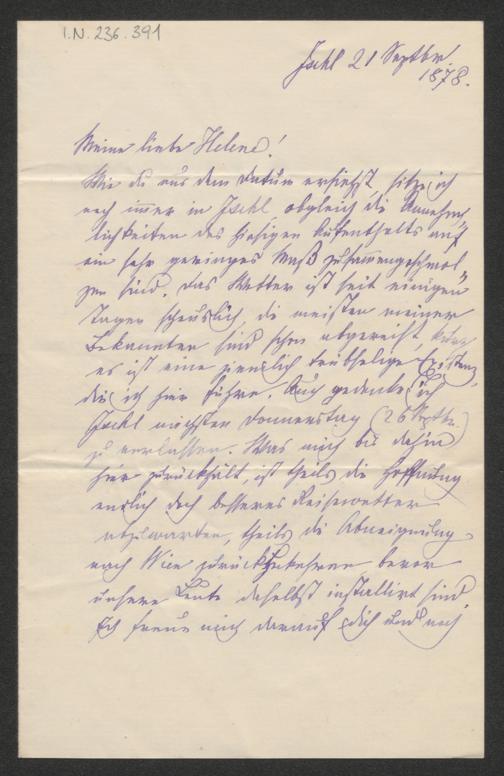 I.N. 236.391
Ischl 21 Septbr.
1878.
Meine liebe Helene!
Wie du aus dem Datum ersiehst, sitze ich
noch immer in Ischl, obgleich die Annehm„
lichkeiten des hiesigen Aufenthalts auf
ein sehr geringes Maß zusammengeschmol„
zen sind. Das Wetter ist seit einigen
Tagen scheuslich, die meisten meiner
Bekannten sind schon abgereist, kurz
es ist eine ziemlich trübselige Existenz
die ich hier führe. Auch gedenke ich
Ischl nächsten Donnerstag (26 Septbr.)
zu verlassen. Was mich bis dahin
hier zurückhält, ist theils die Hoffnung
endlich doch besseres Reisewetter
abzuwarten, theils die Abneigung
nach Wien zurückzukehren bevor
unsere Leute daselbst installirt sind.
Ich freue mich darauf dich und auch